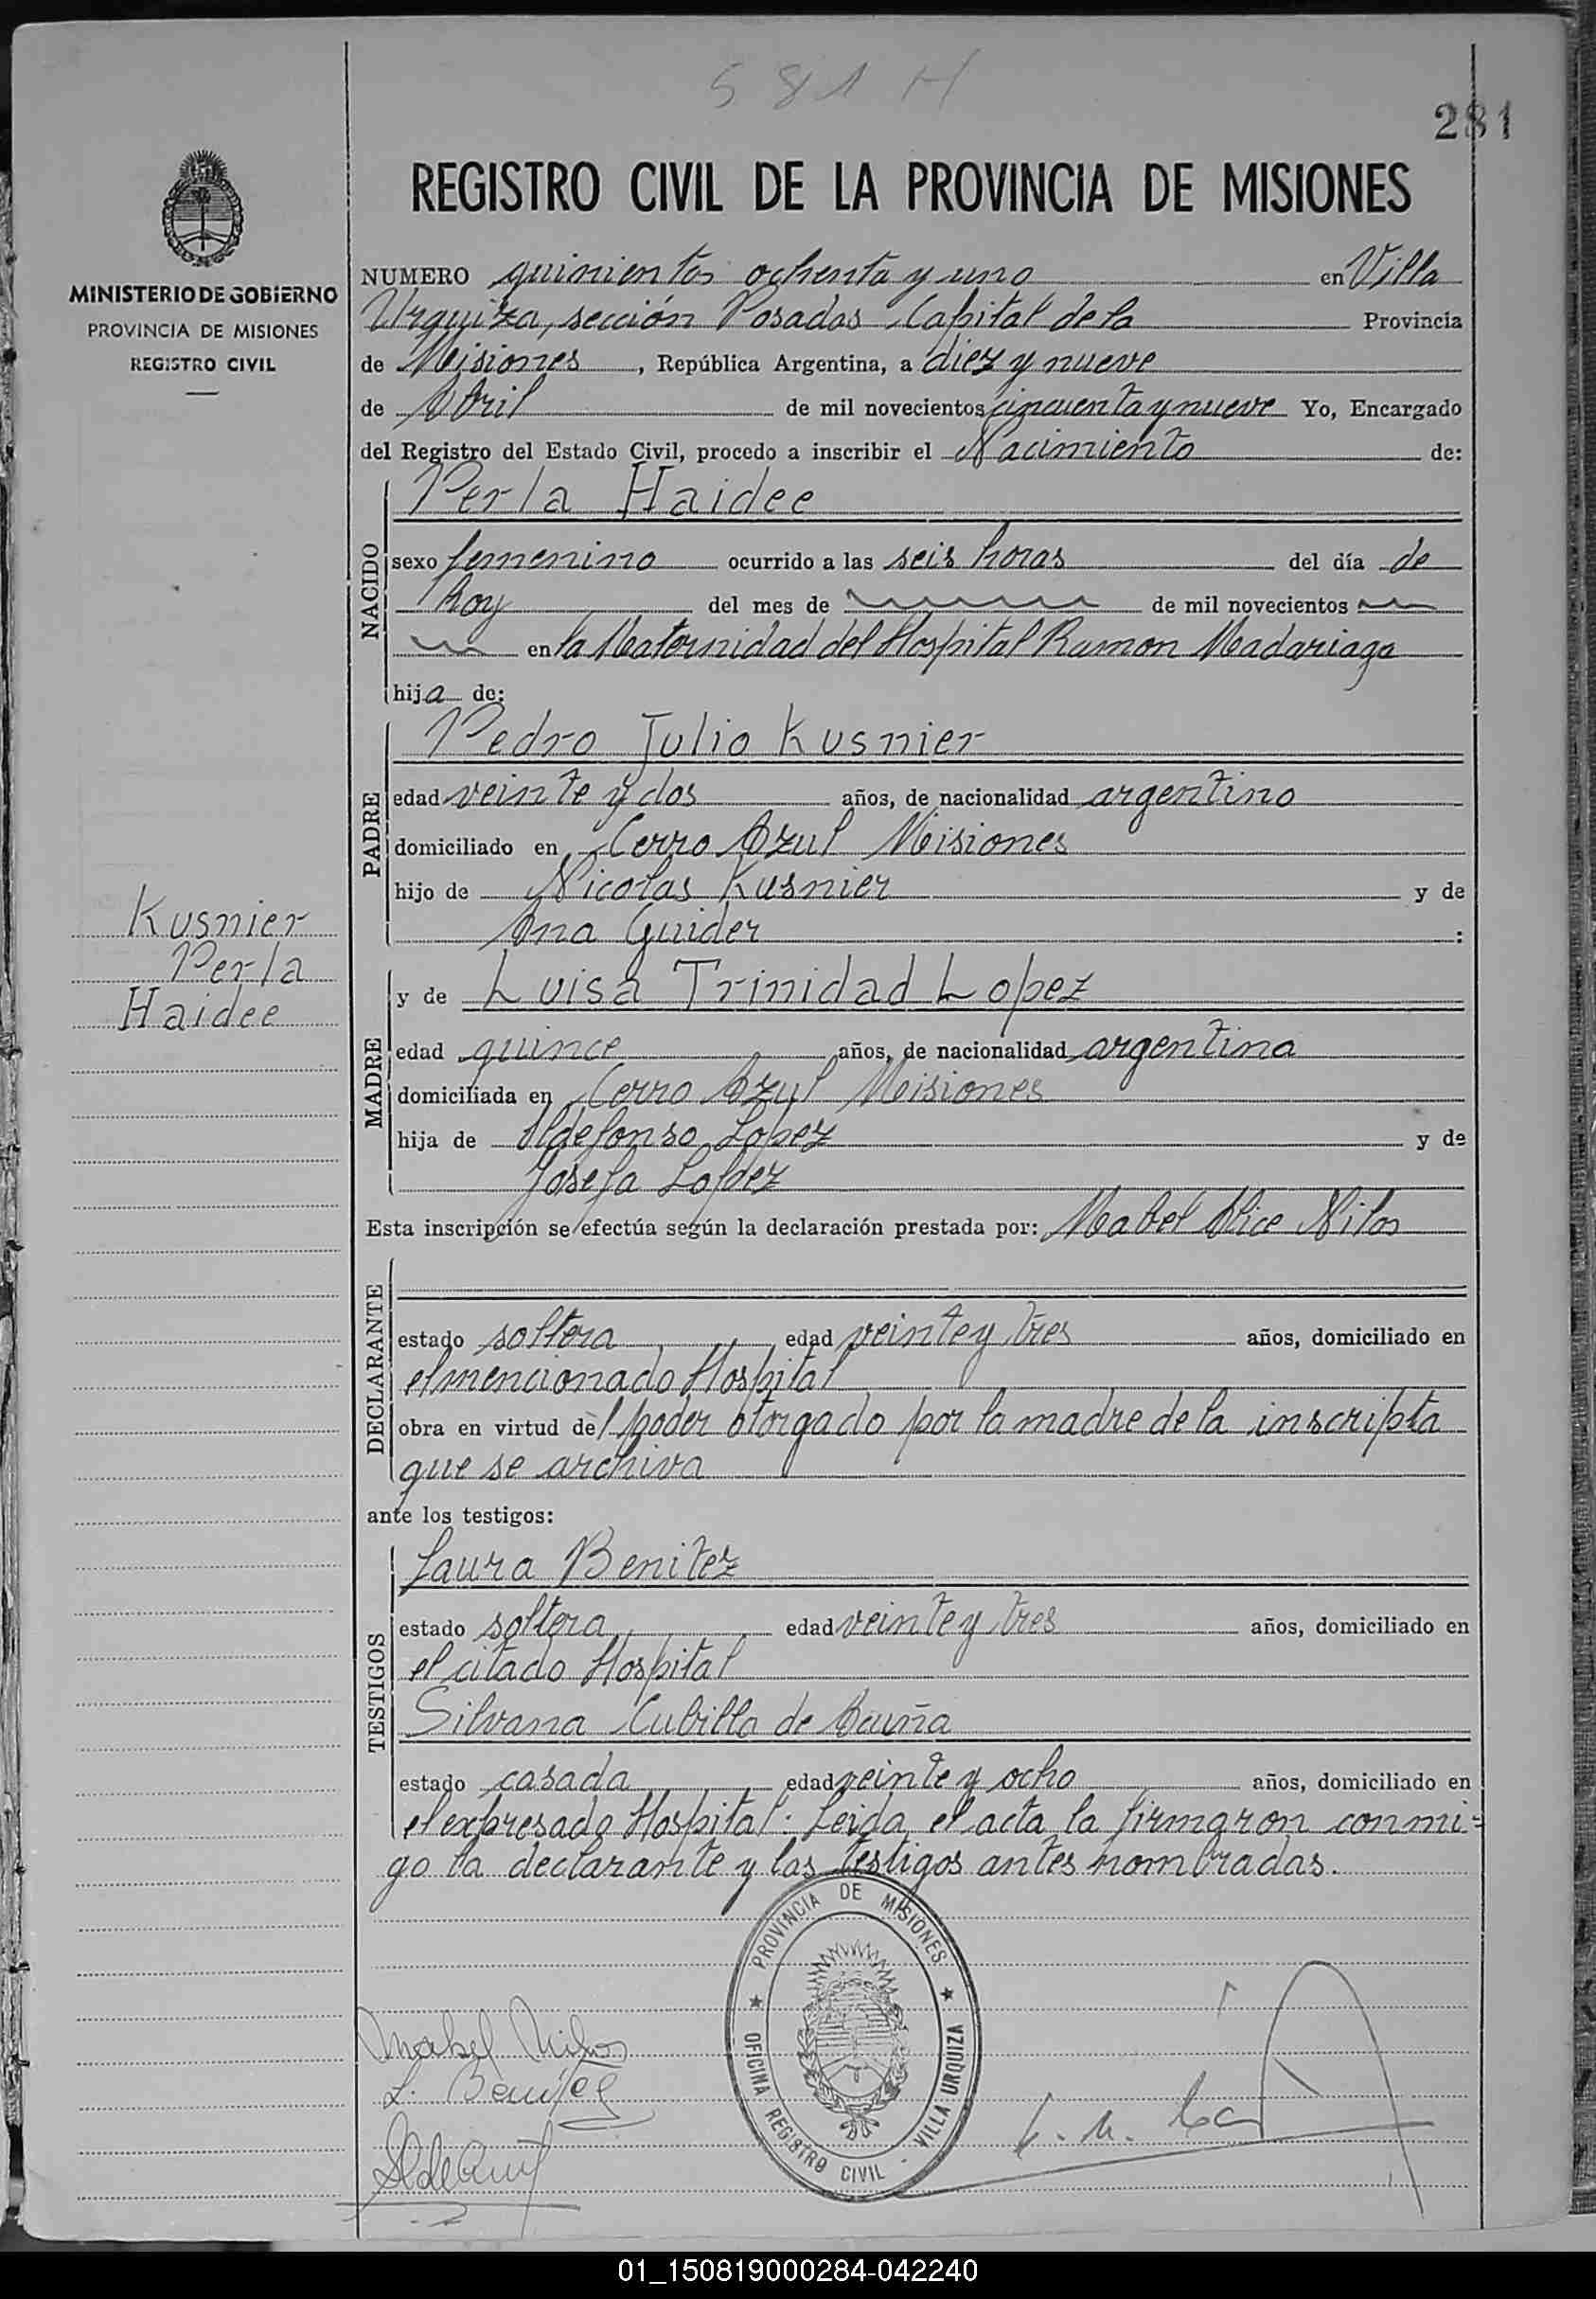 581 H
281
REGISTRO CIVIL DE LA PROVINCIA DE MISIONES
MINISTERIO DE GOBIERNO
PROVINCIA DE MISIONES
REGISTRO CIVIL
NUMERO quinientos ochenta y uno en Villa
Urquiza, sección Posadas Capital de la Provincia
de Misiones, República Argentina, a diez y nueve
de Abril de mil novecientos cincuenta y nueve Yo, Encargado
del Registro del Estado Civil, procedo a inscribir el Nacimiento de:
NACIDO
Perla Haidee
sexo femenino ocurrido a las seis horas del día de
hoy del mes de de mil novecientos
en la Maternidad del Hospital Ramon Madariaga
hija de:
PADRE
Pedro Julio Kusnier
edad veinte y dos años, de nacionalidad argentino
domiciliado en Cerro Azul Misiones
hijo de Nicolas Kusnier y de
Ana Guider :
Kusnier
Perla
Haidee
MADRE
y de Luisa Trinidad Lopez
edad quince años, de nacionalidad argentina
domiciliada en Cerro Azul Misiones
hija de Ildefonso Lopez y de
Josefa Lopez
Esta inscripción se efectúa según la declaración prestada por: Mabel Alice Nilos
DECLARANTE
estado soltera edad veinte y tres años, domiciliado en
el mencionado Hospital
obra en virtud del poder otorgado por la madre de la inscripta
que se archiva
ante los testigos:
TESTIGOS
Laura Benitez
estado soltera edad veinte y tres años, domiciliado en
el citado Hospital
Silvana Cubilla de Acuña
estado casada edad veinte y ocho años, domiciliado en
el expresado Hospital. Leida el acta la firmaron conmi=
go la declarante y las testigos antes nombradas.
PROVINCIA DE MISIONES
OFICINA REGISTRO CIVIL - VILLA URQUIZA
Mabel Nilos
L. Benitez
01_150819000284-042240